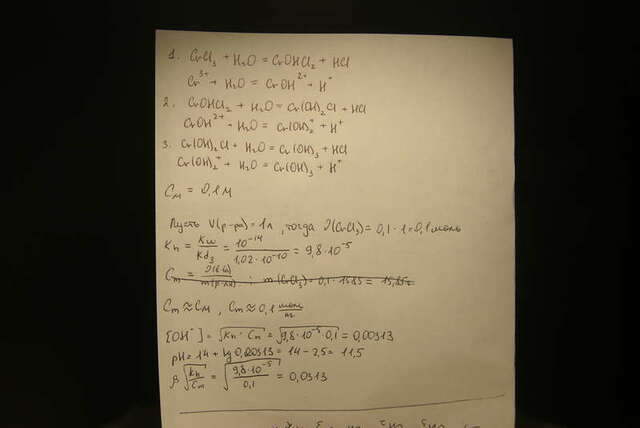 1. CrCl₃ + H₂O = CrOHCl₂ + HCl
Cr³⁺ + H₂O = CrOH²⁺ + H⁺
2. CrOHCl₂ + H₂O = Cr(OH)₂Cl + HCl
CrOH²⁺ + H₂O = Cr(OH)₂⁺ + H⁺
3. Cr(OH)₂Cl + H₂O = Cr(OH)₃ + HCl
Cr(OH)₂⁺ + H₂O = Cr(OH)₃ + H⁺
Cм = 0,1 М
Пусть V(р-ра) = 1л, тогда ν(CrCl₃) = 0,1 · 1 = 0,1 моль
Kh = Kw/Kd₃ = 10⁻¹⁴/1,02·10⁻¹⁰ = 9,8·10⁻⁵
Cm = m(CrCl₃) = 0,1 ·
Cm ≈ Cм, Cm ≈ 0,1 моль/кг
[OH⁻] = √Kh · Cm = √9,8·10⁻⁵·0,1 = 0,00313
pH = 14 + lg 0,00313 = 14 - 2,5 = 11,5
β √Kh/Cm = √9,8·10⁻⁵/0,1 = 0,0313